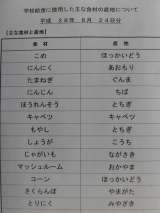 学校給食に使用した主な食材の産地について
平成 28年 6月 24日分
【主な食材と産地】
食材 産地
こめ ほっかいどう
にんにく あおもり
たまねぎ ぐんま
にんじん ちば
ほうれんそう とちぎ
キャベツ キャベツ
もやし とちぎ
しょうが こうち
じゃがいも ながさき
マッシュルーム おかやま
コーン ほっかいどう
さくらんぼ やまがた
とりにく みやざき